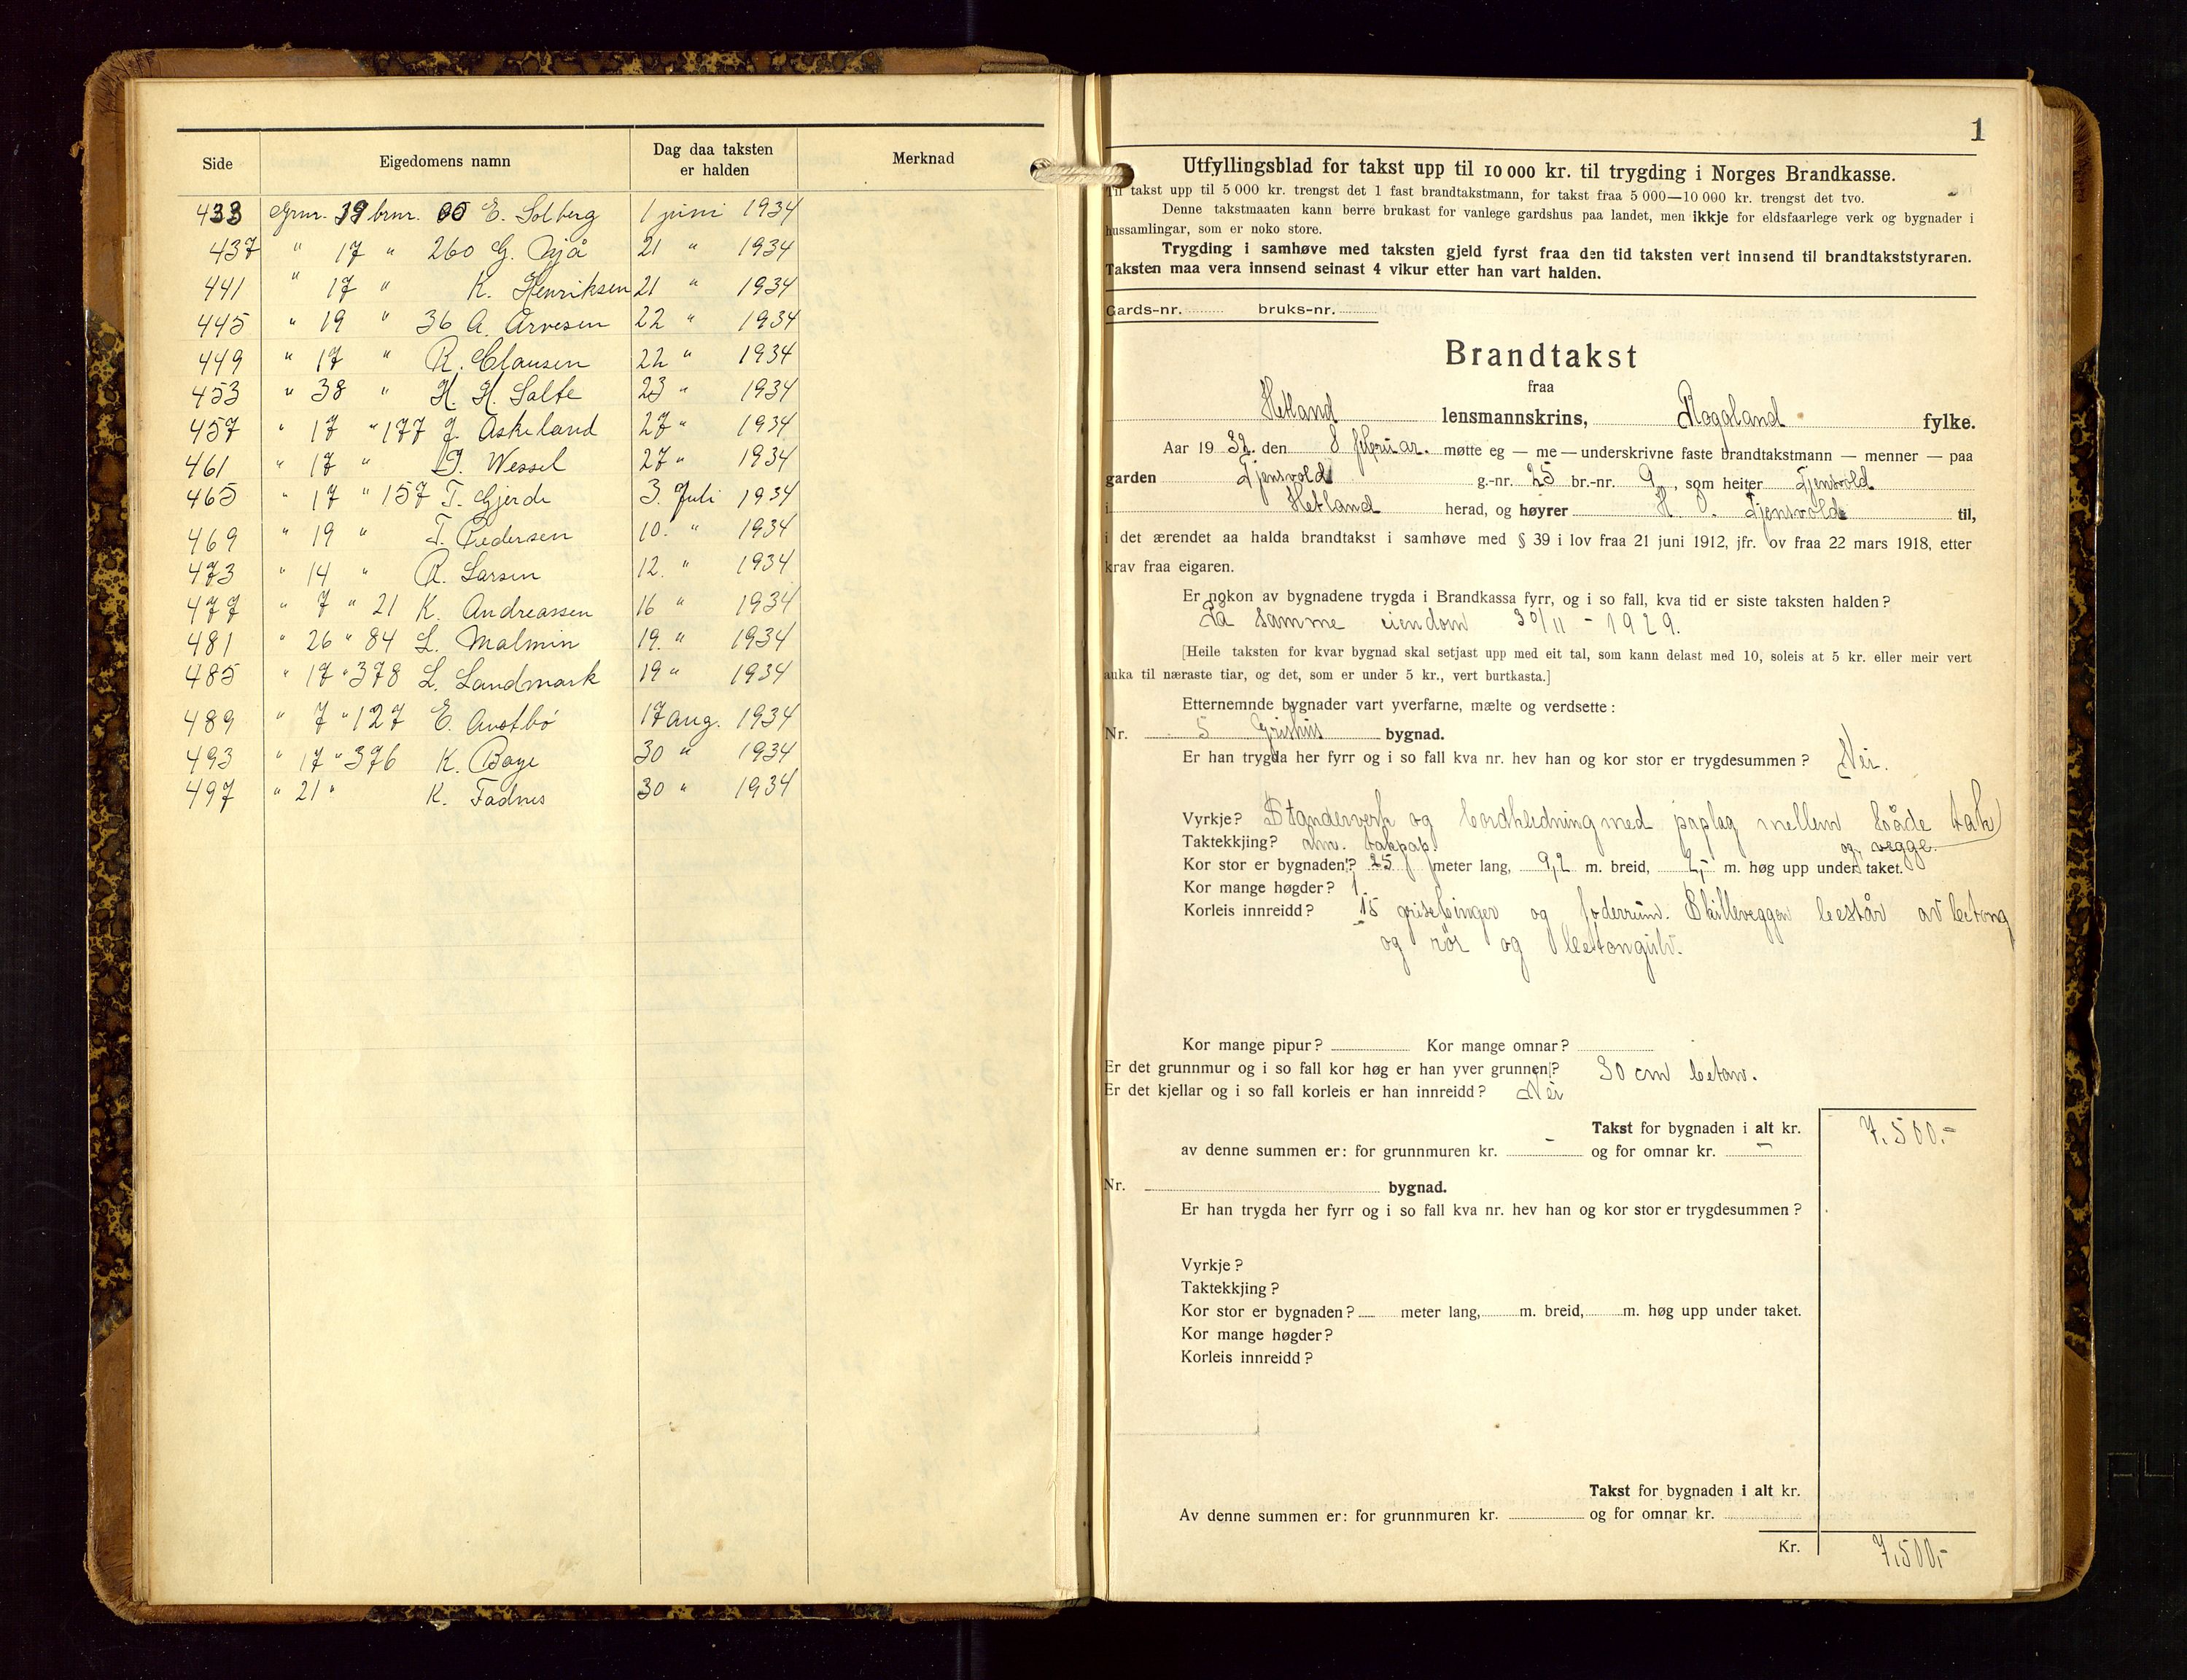 Side Eigedomens namn Dag daa taksten er halden Merknad
433 Grnr. 39 brnr. 65 E. Solberg 1 juni 1934
437 " 17 " 260 G. Njå 21 " 1934
441 " 17 " K. Henriksen 21 " 1934
445 " 19 " 36 A. Arvesen 22 " 1934
449 " 17 " R. Clausen 22 " 1934
453 " 38 " H. H. Salte 23 " 1934
457 " 17 " 177 J. Askeland 27 " 1934
461 " 17 " J. Wessel 27 " 1934
465 " 17 " 157 T. Gjerde 3. Juli 1934
469 " 19 " T. Pedersen 10. " 1934
473 " 14 " R. Larsen 12. " 1934
477 " 7 " 21 K. Andreassen 16 " 1934
481 " 26 " 84 L. Malmin 19. " 1934
485 " 17 " 378 L. Landmark 19 " 1934
489 " 7 " 127 E. Austbö 17 aug. 1934
493 " 17 " 376 K. Boye 30 " 1934
497 " 21 " K. Fadnes 30 " 1934
1
Utfyllingsblad for takst upp til 10 000 kr. til trygding i Norges Brandkasse.
Til takst upp til 5 000 kr. trengst det 1 fast brandtakstmann, for takst fraa 5 000—10 000 kr. trengst det tvo.
Denne takstmaaten kann berre brukast for vanlege gardshus paa landet, men ikkje for eldsfaarlege verk og bygnader i
hussamlingar, som er noko store.
Trygding i samhøve med taksten gjeld fyrst fraa den tid taksten vert innsend til brandtakststyraren.
Taksten maa vera innsend seinast 4 vikur etter han vart halden.
Gards-nr. bruks-nr.
Brandtakst
fraa
Hetland lensmannskrins, Rogaland fylke.
Aar 19 32. den 8 februar. møtte eg — me — underskrivne faste brandtakstmann — menner — paa
garden Tjensvold g.-nr. 25 br.-nr. 9 , som heiter Tjensvold
i Hetland herad, og høyrer H. O. Tjensvold til,
i det ærendet aa halda brandtakst i samhøve med § 39 i lov fraa 21 juni 1912, jfr. lov fraa 22 mars 1918, etter
krav fraa eigaren.
Er nokon av bygnadene trygda i Brandkassa fyrr, og i so fall, kva tid er siste taksten halden?
På samme eiendom 30/11 - 1929.
[Heile taksten for kvar bygnad skal setjast upp med eit tal, som kann delast med 10, soleis at 5 kr. eller meir vert
auka til næraste tiar, og det, som er under 5 kr., vert burtkasta.]
Etternemnde bygnader vart yverfarne, mælte og verdsette:
Nr. 5 Grishus bygnad.
Er han trygda her fyrr og i so fall kva nr. hev han og kor stor er trygdesummen? Nei.
Vyrkje? Standerverk og bordkledning med paplag mellem både tak
og vegge.
Taktekkjing? alm. takpap.
Kor stor er bygnaden? 25 meter lang, 9,2 m. breid, 2,- m. høg upp under taket.
Kor mange høgder? 1.
Korleis innreidd? 15 grisebinger og foderrum. Skilleveggen består av betong
og rör og betongulv.
Kor mange pipur? Kor mange omnar?
Er det grunnmur og i so fall kor høg er han yver grunnen? 30 cm betong.
Er det kjellar og i so fall korleis er han innreidd? Nei
Takst for bygnaden i alt kr. 7.500.-
av denne summen er: for grunnmuren kr. - og for omnar kr. -
Nr. bygnad.
Er han trygda her fyrr og i so fall kva nr. hev han og kor stor er trygdesummen?
Vyrkje?
Taktekkjing?
Kor stor er bygnaden? meter lang, m. breid, m. høg upp under taket.
Kor mange høgder?
Korleis innreidd?
Takst for bygnaden i alt kr.
Av denne summen er: for grunnmuren kr. og for omnar kr.
Kr. 7.500.-